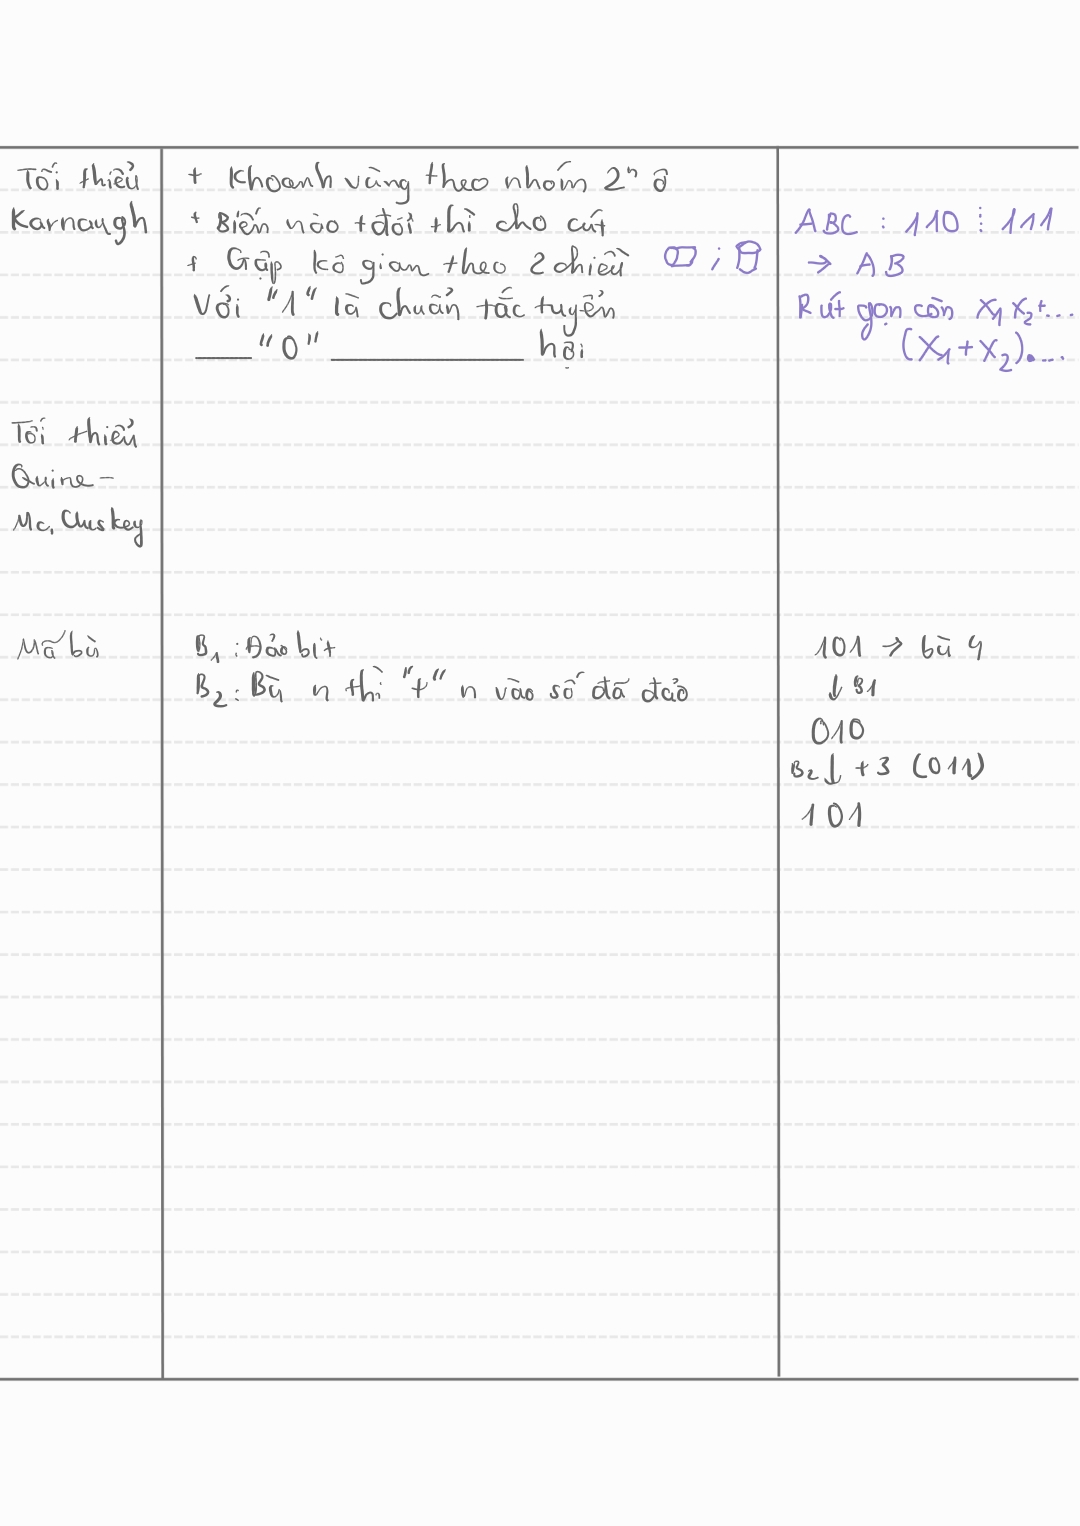 Tối thiểu
Karnaugh
+ Khoanh vùng theo nhóm 2ⁿ ô
+ Biến nào tđổi thì cho cút
+ Gập kô gian theo 2 chiều
Với "1" là chuẩn tắc tuyển
"0" hội
ABC : 110 ⋮ 111
→ AB
Rút gọn còn X₁X₂+...
(X₁+X₂)....
Tối thiểu
Quine-
Mc. Cluskey
Mã bù
B₁ : Đảo bit
B₂ : Bù n thì "+" n vào số đã đảo
101 → bù 4
↓ B1
010
B₂ ↓ +3 (011)
101